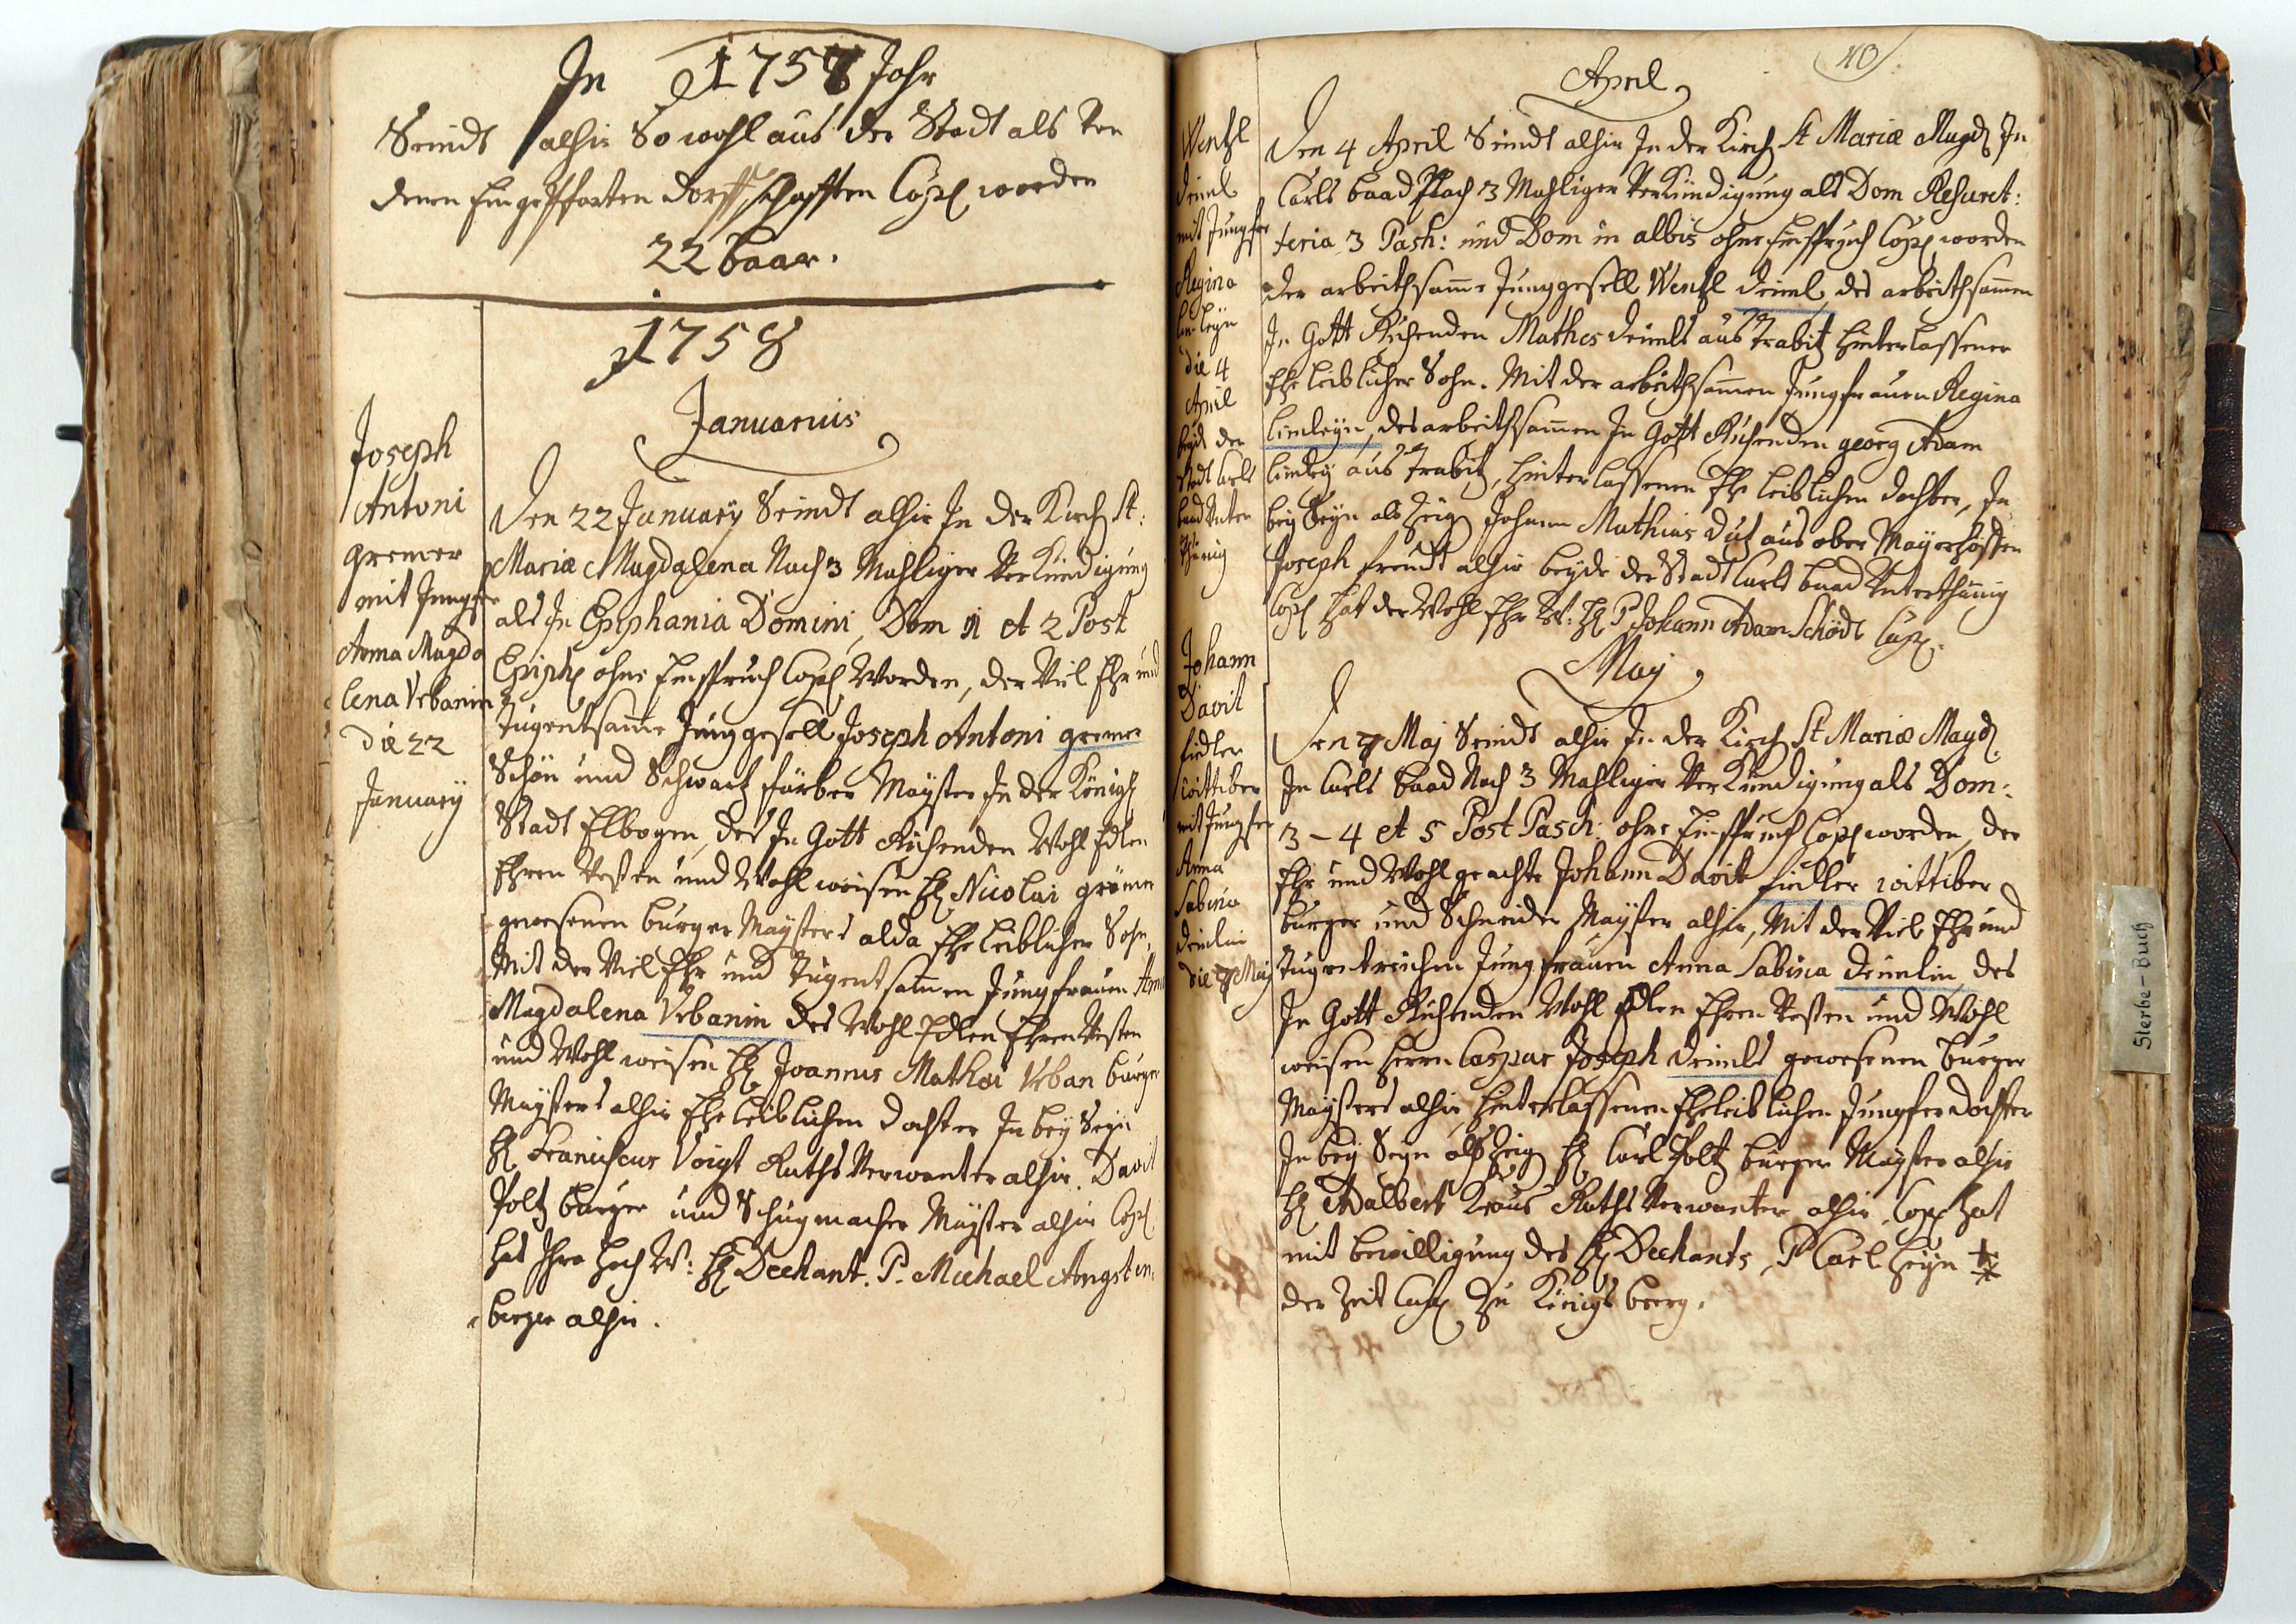 In 1757 Jahr
Seindt alhir So wohl aus der Stadt als von
denen Eingepfarten dorffschafften Cop worden
22 baar.
1758
Januarius
Joseph
Antoni
gremer
mit Jungfr
Anna Magda
lena Urbanin
die 22
Januarÿ
Den 22 Januarÿ Seindt alhir In der Kirch St:
Mariæ Magdalena Nach 3 Mahliger Verkündigung
als In Epiphania Domini, Dom 1 et 2 Post
Epiph ohne Einspruch Cop Worden, der Viel Ehr und
Tugentsame Junggesell Joseph Antoni gremer
Schön und Schwartz färber Maÿster In der Königl
Stadt Elbogen, des In Gott Ruhenden Wohl Edlen
Ehren Vesten und Wohl weisen H Nicolai grömer
gewesenen burger Maÿsters alda Ehe leiblicher Sohn,
Mit der Viel Ehr und Tugentsamen Jungfrauen Anna
Magdalena Urbanin des Wohl Edlen Ehren Vesten
und Wohl weisen H Joannis Mathæi Urban burger
Maÿsters alhir Ehe leiblichen dochter In beÿ Seÿn
H Franciscus Voigt Raths Verwanter alhir. Davit
Poltz burger und Schugmacher Maÿster alhir Cop
hat Ihro Hoch W: H Dechant. P. Michael Angsten
berger alhir.
40
April
Wentzl
deiml
mit Jungfr
Regina
die 4
April
beÿde der
Stadt Carls
baad Unter
thänig
Den 4 April Seindt alhir In der Kirch St Mariæ Magd In
Carls baad Nach 3 Mahliger Verkündigung als Dom Resuret:
feria 3 Pash: und Dom in albis ohne Einspruch Cop worden
der arbeithsame Junggesell Wentzl deiml, des arbeithsamen
In Gott Ruhenden Mathes deimls aus Trabitz hinterlassener
Ehe leiblicher Sohn. Mit der arbeithsamen Jungfrauen Regina
Limleÿn, des arbeithsamen In Gott Ruhenden georg Adam
Limleÿ aus Trabitz, hinterlassenen Ehe leiblichen dochter, In
beÿ Seÿn als Zeig Johann Mathias dutz aus ober Maÿerhöffen
Joseph freudt alhir beÿde der Stadt Carls baad Unterthänig
Cop hat der Wohl Ehr W: H P Johann Adam Schödl Cap.
Maj
Johann
Davit
fidler
wittiber
mit Jungfer
Anna
Sabina
deimlin
die 7 Maj
Den 7 Maj Seindt alhir In der Kirch St Mariæ Magd
In Carls baad Nach 3 Mahliger Verkündigung als Dom:
3 - 4 et 5 Post Pasch: ohne Einspruch Cop worden, der
Ehr und Wohl geachte Johann Davit fiedler wittiber
burger und Schneider Maÿster alhir, Mit der Viel Ehr und
Tugentreichen Jungfrauen Anna Sabina deimlin, des
In Gott Ruhenden Wohl Edlen Ehren Vesten und Wohl
weisen Herrn Caspar Joseph deimls gewesenen burger
Maÿsters alhir, hinterlassenen Eheleiblichen Jungfer dochter
In beÿ Seÿn als Zeig H Carl Poltz burger Maÿster alhir
H Adalbert Kraus Raths Verwanter alhir, Cop hat
mit bewilligung des H Dechants, P Carl Heÿn
der Zeit Cap zu Königsberg.
Sterbe-Buch